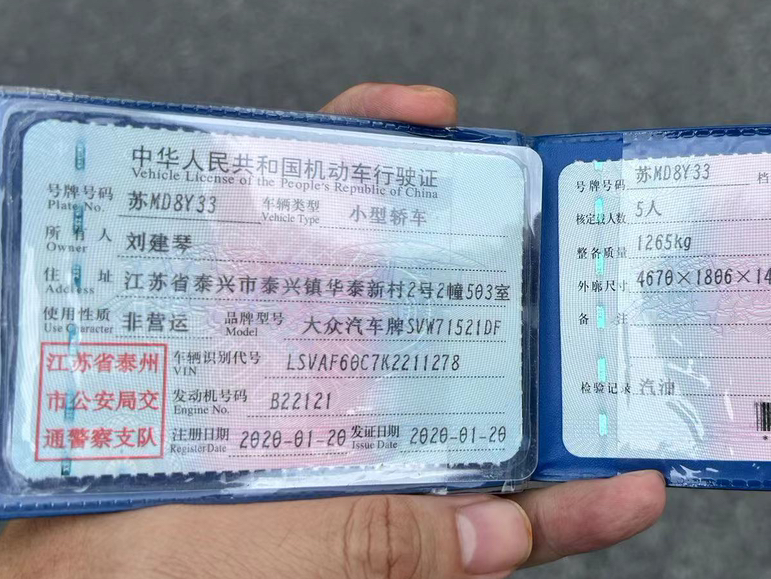 中华人民共和国机动车行驶证
Vehicle License of the People's Republic of China
号牌号码 苏MD8Y33 车辆类型 小型轿车
Plate No. Vehicle Type
所有人 刘建琴
Owner
住址 江苏省泰兴市泰兴镇华泰新村2号2幢503室
Address
使用性质 非营运 品牌型号 大众汽车牌SVW71521DF
Use Character Model
江苏省泰州
市公安局交
通警察支队
车辆识别代号 LSVAF60C7K2211278
VIN
发动机号码 B22121
Engine No.
注册日期 2020-01-20 发证日期 2020-01-20
Register Date Issue Date
号牌号码 苏MD8Y33 档
核定载人数 5人
整备质量 1265kg
外廓尺寸 4670×1806×14
备注
检验记录 汽油